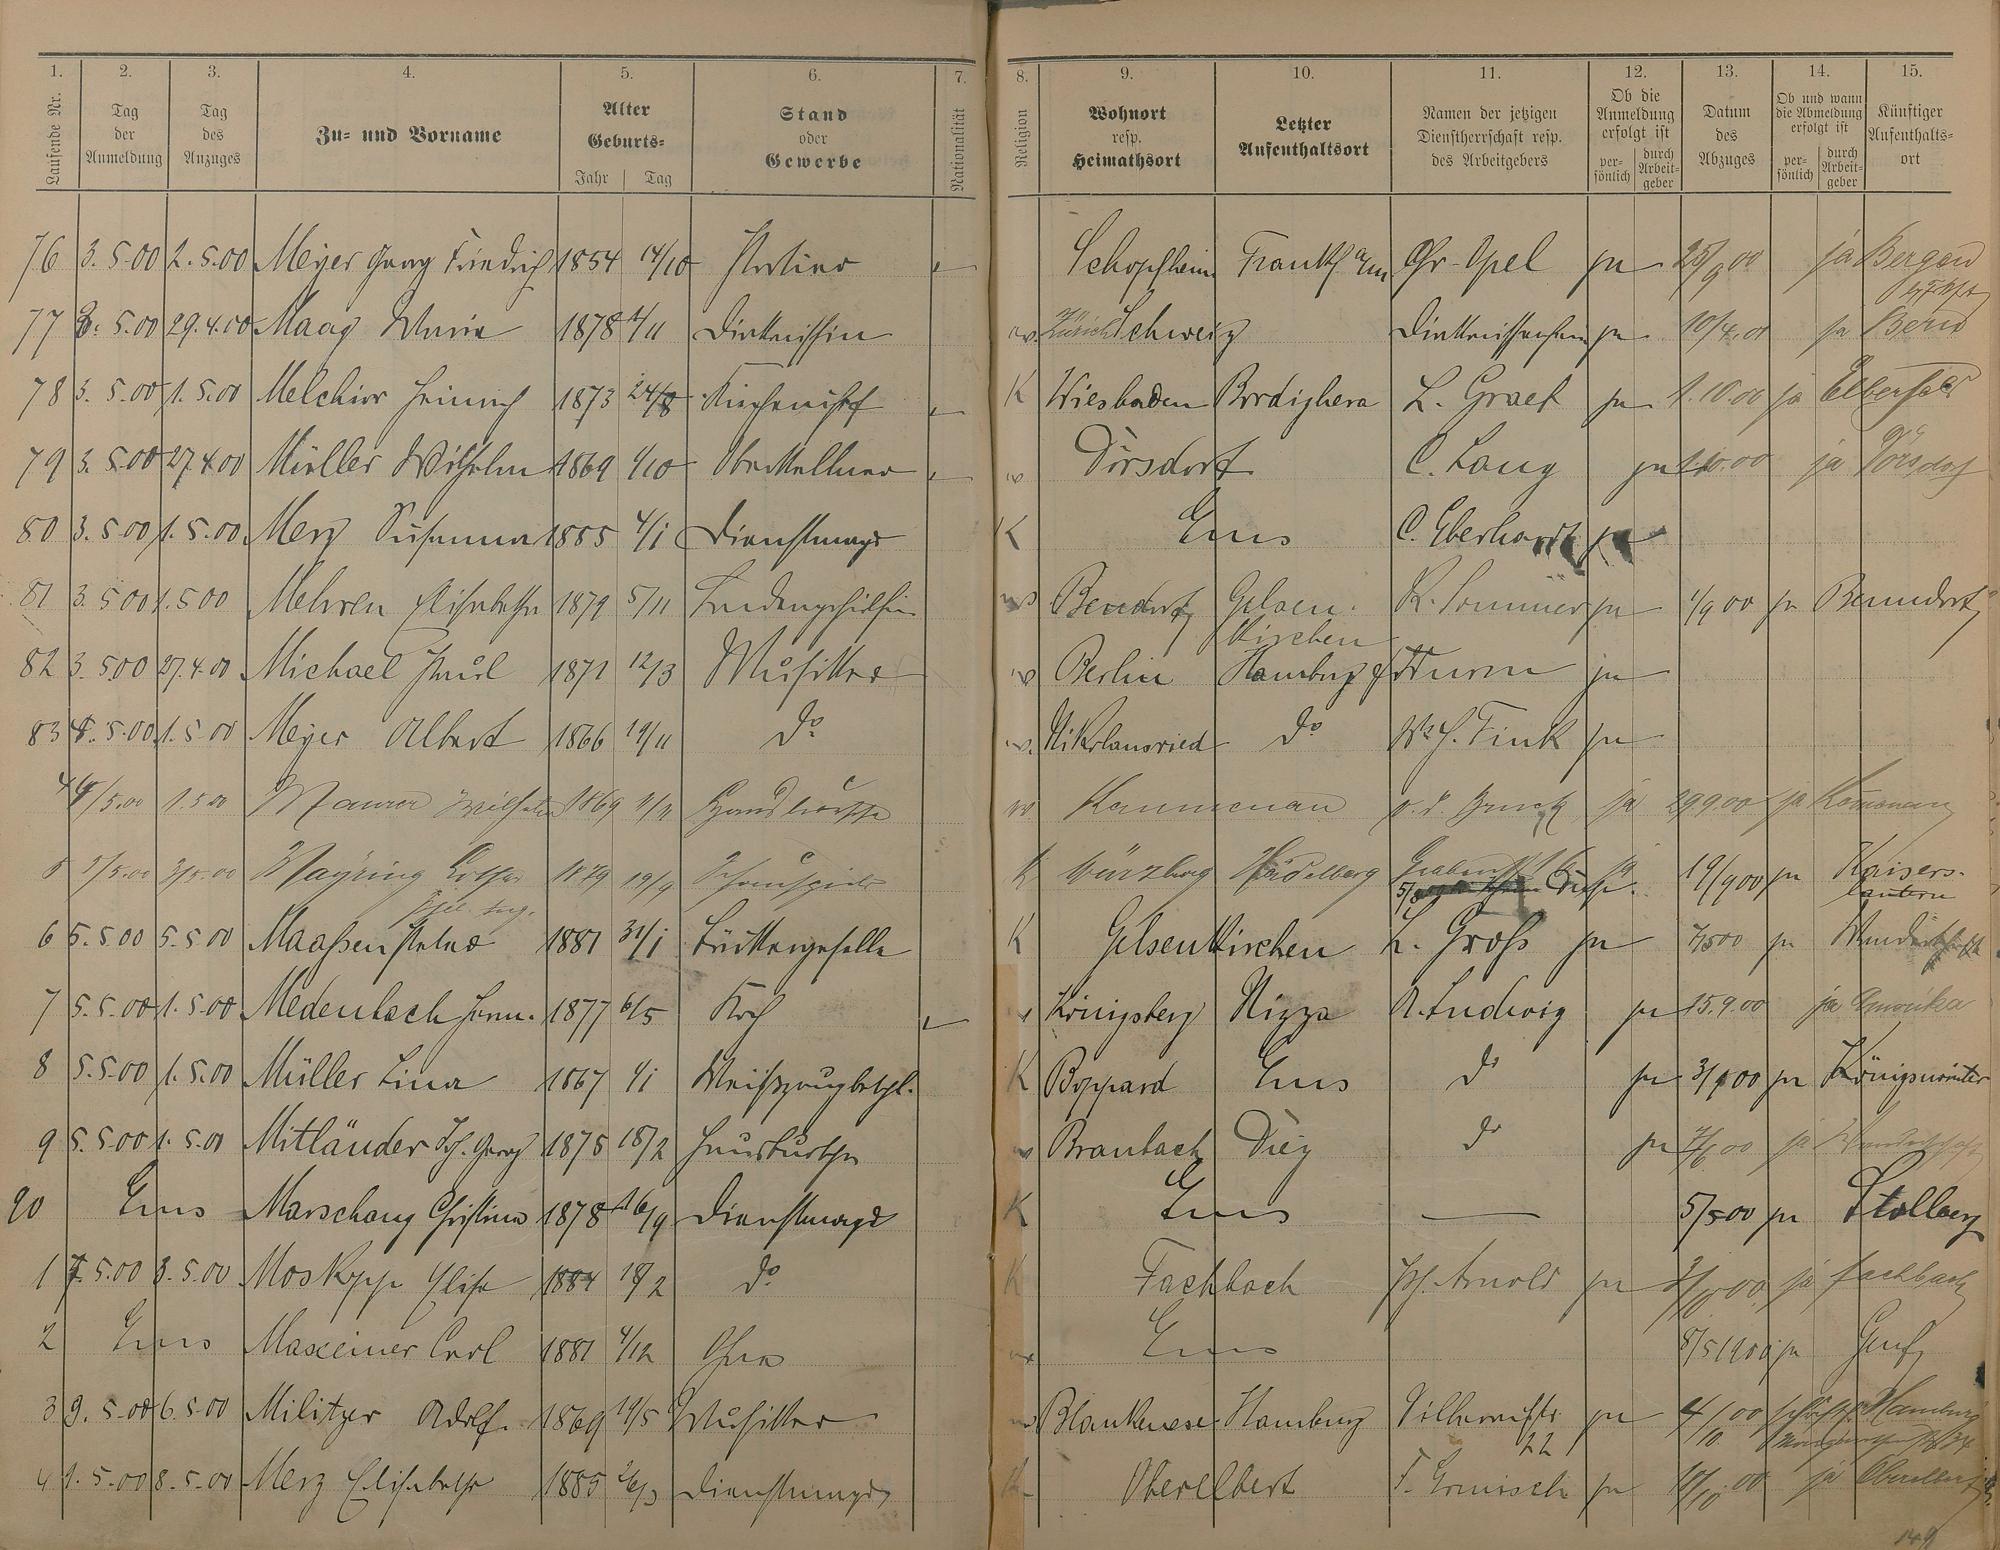 1. 2. 3. 4. 5. 6. 7. 8. 9. 10. 11. 12. 13. 14. 15.
Laufende Nr. Tag der Anmeldung Tag des Anzuges Zu- und Vorname Alter Geburts- Jahr Tag Stand oder Gewerbe Nationalität Religion Wohnort resp. Heimathsort Letzter Aufenthaltsort Namen der jetzigen Dienstherrschaft resp. des Arbeitgebers Ob die Anmeldung erfolgt ist persönlich durch Arbeitgeber Datum des Abzuges Ob und wann die Abmeldung erfolgt ist persönlich durch Arbeitgeber Künftiger Aufenthaltsort
76 3.5.00 2.5.00 Meyer Georg Friedrich 1854 14/10 Portier Schopfheim Frankf a/m Chr. Opel ja 25/9 00 ja Bergen
77 5.00 29.4.00 Maag Maria 1878 4/11 Diakonissin Zürich Schweiz ja 10/4.01 ja Bern
78 3.5.00 1.5.00 Melchior Heinrich 1873 24/8 Küchenchef K Wiesbaden Bordighera L. Graef ja 1.10.00 ja Elberfeld
79 3.5.00 27.4.00 Müller Wilhelm 1869 1/10 Oberkellner Dörsdorf C. Lang ja 1.10.00 ja Dörsdorf
80 3.5.00 1.5.00 Merz Susanna 1885 4/1 Dienstmagd K Ems C. Eberhardt ja
81 3.5.00 1.5.00 Mehren Elisabetha 1879 5/11 Ladengehilfin Bendorf Gelsenkirchen K. Sommer ja 1/9 00 ja Benndorf
82 3.5.00 27.4.00 Michael Paul 1871 12/3 Musiker Berlin Hamburg Wurm ja
83 5.00 1.5.00 Meyer Albert 1866 19/11 do Nikolausried do Fink ja
4 4/5.00 1.5.00 Maurer Wilhelm 1869 1/11 Hausbursche Kemmenau ja 29.9.00 ja Kemmenau
5 5/5.00 Mayring 1879 19/9 Schauspieler K Würzburg Heidelberg 19/9 00 ja Kaiserslautern
6 5.5.00 5.5.00 Maaßen Peter 1881 31/1 K Gelsenkirchen L. Groß ja 7/5 00 ja
7 5.5.00 1.5.00 Medenbach Herm. 1877 6/5 Koch Königsberg Nizza A. Ludwig ja 15.9.00 ja Amerika
8 5.5.00 1.5.00 Müller Lina 1867 1/1 K Boppard Ems do ja ja Königswinter
9 5.5.00 1.5.00 Mitländer Joh. Georg 1875 18/2 Hausbursche Braubach Diez do ja 7/6 00 ja Wanderschaft
90 Ems Marschang Christina 1878 16/9 Dienstmagd K Ems — 5/5 00 ja Stollberg
1 5.00 3.5.00 Moskopp Elise 1884 18/2 do K Fachbach Jos. Arnold ja ja Fachbach
2 Ems Maxeiner Carl 1881 4/12 Ems 8/5 1900 ja Genf
3 9.5.00 6.5.00 Militzer Adolf. 1869 14/5 Musiker Blankenese Hamburg 22 ja 4/10 00 Hamburg
4 5.00 8.5.00 Merz Elisabetha 1885 26/3 Dienstmagd K Oberelbert ja 10/10 00 ja Oberelbert
149